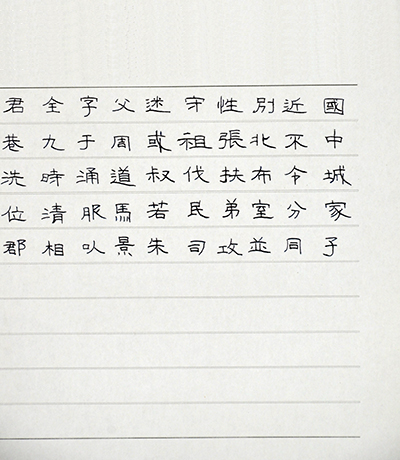 君全字父迷守性別近國
巷九于周或祖張北來中
洗時涌道叔伐扶布令城
位清服馬若民弟室分家
郡相以景朱司攻並同子